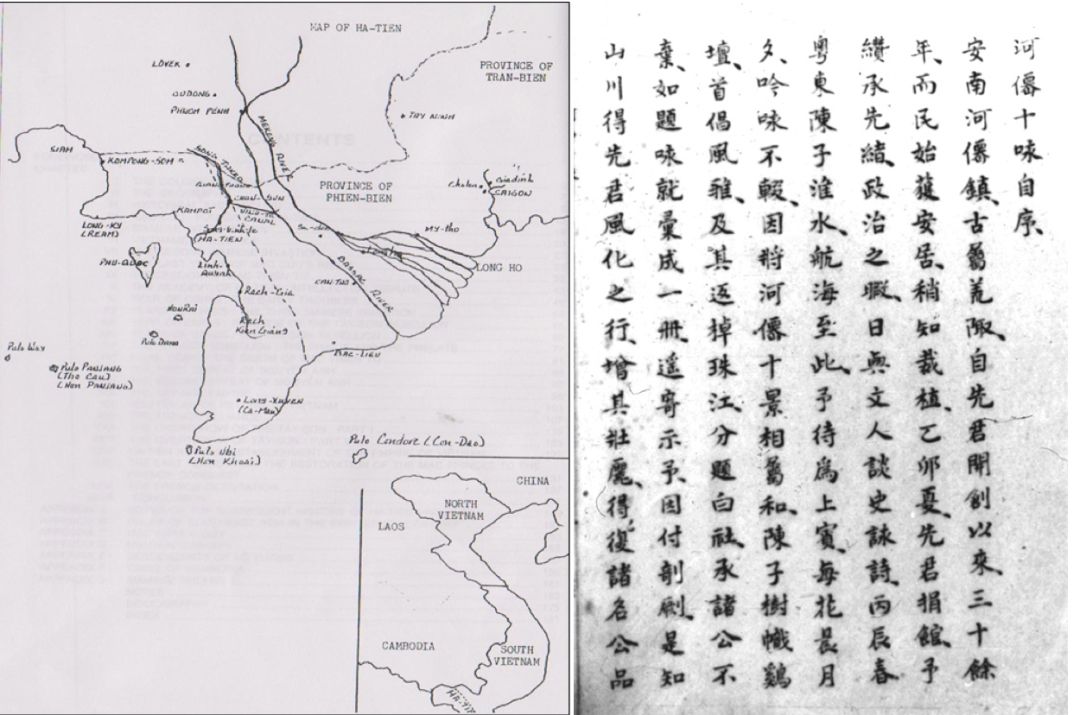 MAP OF HA-TIEN
PROVINCE OF
TRAN-BIEN
LOVEK
OUDONG
PHNOM PENH
MEKONG RIVER
TAY NINH
SIAM
KOMPONG-SOM
PROVINCE OF
PHIEN-BIEN
Cholon
Giadinh
SAIGON
KAMPOT
VINH-TE
CANAL
LONG-KY
(REAM)
HA-TIEN
MY-THO
LONG HO
PHU-QUOC
Linh-
Quynh
BASSAC RIVER
CAN-THO
Rach-Gia
Rach
Kien Giang
BAC-LIEU
Pulo Way
Pulo Dama
Pulo Panjang
(Tho Cau)
(Hon Panjang)
Long-Xuyen
(Ca-Mau)
Pulo Ubi
(Hon Khoai)
Pulo Condore (Con-Dao)
CHINA
NORTH
VIETNAM
LAOS
CAMBODIA
SOUTH
VIETNAM
HA-TIEN
河僊十咏自序、
安南河僊鎮、古屬荒陬、自先君開創以來、三十餘
年、而民始獲安居、稍知栽植、乙卯夏、先君捐館、予
纘承先緒、政治之暇、日與文人談史詠詩、丙辰春
粵東陳子淮水、航海至此、予待為上賓、每花晨月
夕、吟咏不輟、因將河僊十景相屬和、陳子樹幟鷄
壇、首倡風雅、及其返棹珠江、分題白社、承諸公不
棄、如題咏就、彙成一冊、遥寄示予、因付剞劂、是知
山川得先君風化之行、增其壯麗、得復諸名公品